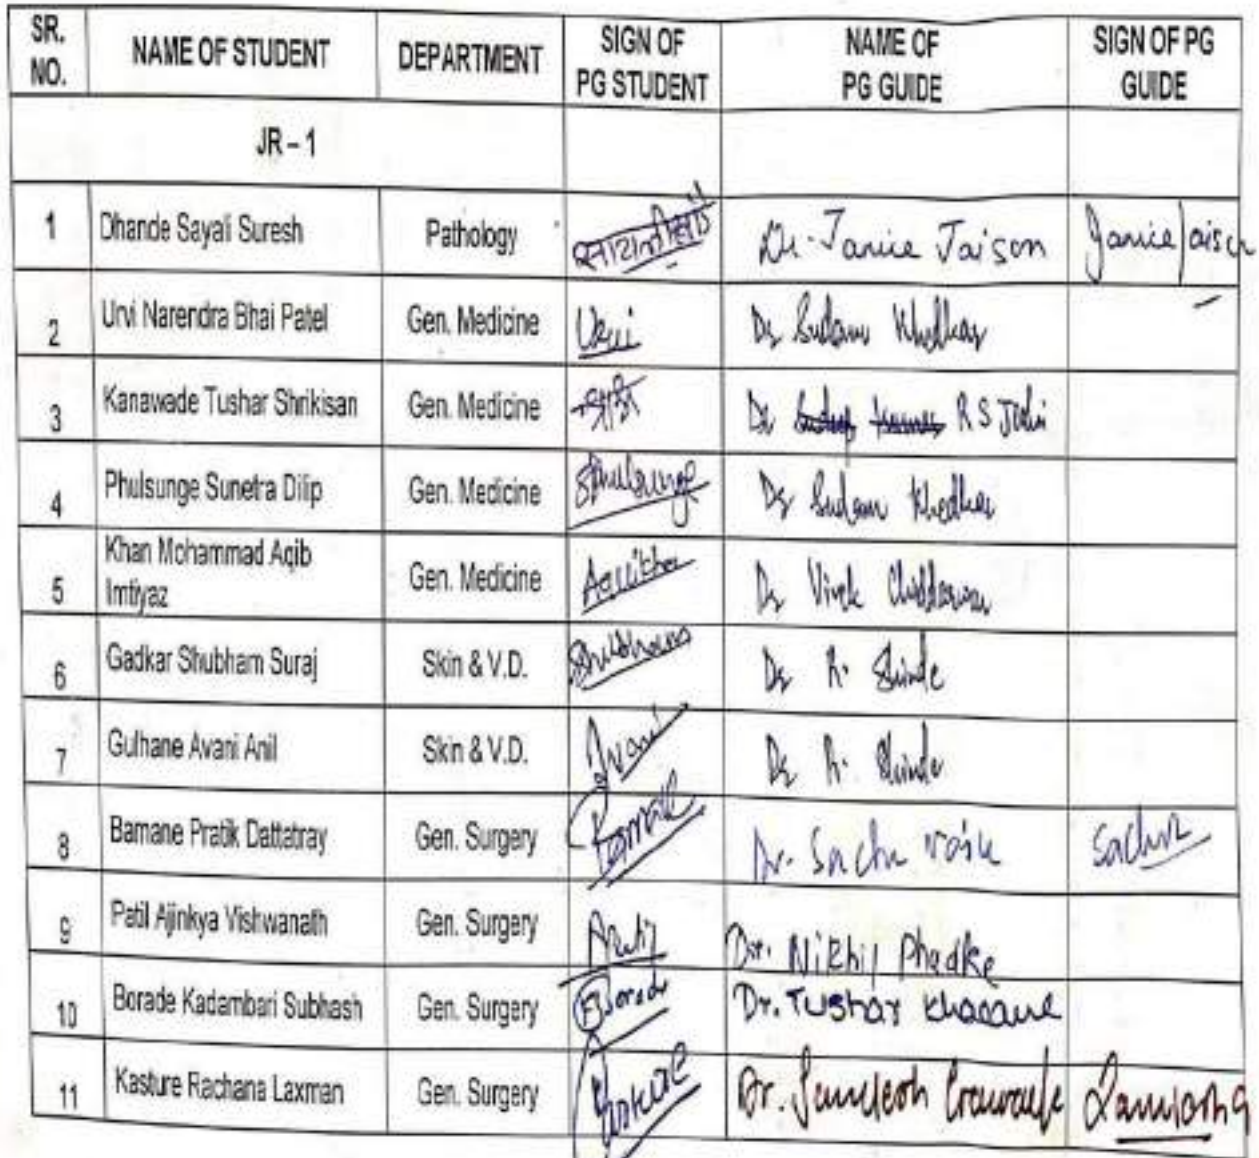 SR. NO. NAME OF STUDENT DEPARTMENT SIGN OF PG STUDENT NAME OF PG GUIDE SIGN OF PG GUIDE
JR – 1
1 Dhande Sayali Suresh Pathology Dr. Janice Jaison Janice Jaison
2 Urvi Narendra Bhai Patel Gen. Medicine Urvi Dr Sudam Khedkar
3 Kanawade Tushar Shrikisan Gen. Medicine Dr R S Joshi
4 Phulsunge Sunetra Dilip Gen. Medicine Sphulsunge Dr Sudam Khedkar
5 Khan Mohammad Aqib Imtiyaz Gen. Medicine Dr Vivek
6 Gadkar Shubham Suraj Skin & V.D. Shubham Dr R. Shinde
7 Gulhane Avani Anil Skin & V.D. Avani Dr R. Shinde
8 Bamane Pratik Dattatray Gen. Surgery Dr. Sachin Naik Sachin
9 Patil Ajinkya Vishwanath Gen. Surgery Dr. Nikhil Phadke
10 Borade Kadambari Subhash Gen. Surgery Borade Dr. Tushar
11 Kasture Rachana Laxman Gen. Surgery Kasture Dr.